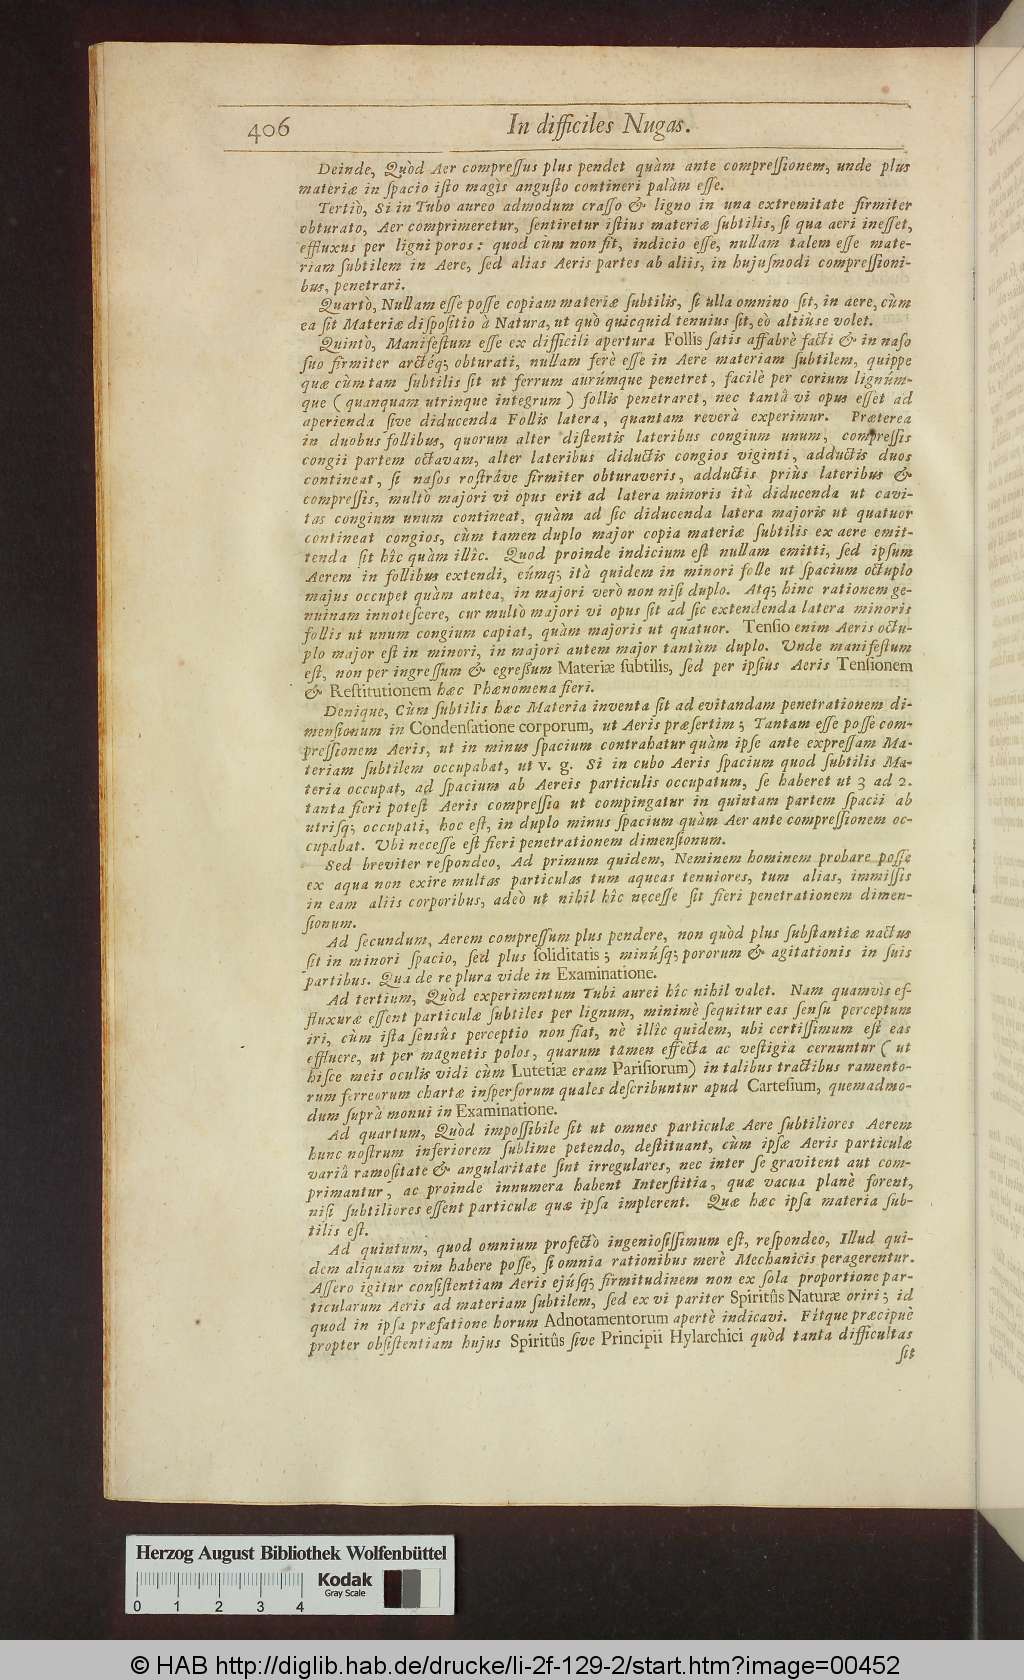 406
In difficiles Nugas.
Deinde, Quòd Aer compreſſus plus pendet quàm ante compreſſionem, unde plus
materiæ in ſpacio iſto magis anguſto contineri palàm eſſe.
Tertiò, Si in Tubo aureo admodum craſſo & ligno in una extremitate firmiter
obturato, Aer comprimeretur, ſentiretur iſtius materiæ ſubtilis, ſi qua aeri ineſſet,
effluxus per ligni poros: quod cùm non fit, indicio eſſe, nullam talem eſſe mate-
riam ſubtilem in Aere, ſed alias Aeris partes ab aliis, in hujuſmodi compreſſioni-
bus, penetrari.
Quartò, Nullam eſſe poſſe copiam materiæ ſubtilis, ſi ulla omnino ſit, in aere, cùm
ea ſit Materiæ diſpoſitio à Natura, ut quò quicquid tenuius ſit, eò altiùs evolet.
Quintò, Manifeſtum eſſe ex difficili apertura Follis ſatis affabrè facti & in naſo
ſuo firmiter arctéq; obturati, nullam ferè eſſe in Aere materiam ſubtilem, quippe
quæ cùm tam ſubtilis ſit ut ferrum aurúmque penetret, facilè per corium lignúm-
que (quanquam utrinque integrum) follis penetraret, nec tantâ vi opus eſſet ad
aperienda ſive diducenda Follis latera, quantam reverà experimur. Præterea
in duobus follibus, quorum alter diſtentis lateribus congium unum, compreſſis
congii partem octavam, alter lateribus diductis congios viginti, adductis duos
contineat, ſi naſos roſtráve firmiter obturaveris, adductis priùs lateribus &
compreſſis, multò majori vi opus erit ad latera minoris ità diducenda ut cavi-
tas congium unum contineat, quàm ad ſic diducenda latera majoris ut quatuor
contineat congios, cùm tamen duplo major copia materiæ ſubtilis ex aere emit-
tenda ſit hîc quàm illîc. Quod proinde indicium eſt nullam emitti, ſed ipſum
Aerem in follibus extendi, eúmq; ità quidem in minori folle ut ſpacium octuplo
majus occupet quàm antea, in majori verò non niſi duplo. Atq; hinc rationem ge-
nuinam innoteſcere, cur multò majori vi opus ſit ad ſic extendenda latera minoris
follis ut unum congium capiat, quàm majoris ut quatuor. Tenſio enim Aeris octu-
plo major eſt in minori, in majori autem major tantùm duplo. Unde manifeſtum
eſt, non per ingreſſum & egreßum Materiæ ſubtilis, ſed per ipſius Aeris Tenſionem
& Reſtitutionem hæc Phænomena fieri.
Denique, Cùm ſubtilis hæc Materia inventa ſit ad evitandam penetrationem di-
menſionum in Condenſatione corporum, ut Aeris præſertim; Tantam eſſe poſſe com-
preſſionem Aeris, ut in minus ſpacium contrahatur quàm ipſe ante expreſſam Ma-
teriam ſubtilem occupabat, ut v. g. Si in cubo Aeris ſpacium quod ſubtilis Ma-
teria occupat, ad ſpacium ab Aereis particulis occupatum, ſe haberet ut 3 ad 2.
tanta fieri poteſt Aeris compreſſio ut compingatur in quintam partem ſpacii ab
utriſq; occupati, hoc eſt, in duplo minus ſpacium quàm Aer ante compreſſionem oc-
cupabat. Ubi neceſſe eſt fieri penetrationem dimenſionum.
Sed breviter reſpondeo, Ad primum quidem, Neminem hominem probare poſſe
ex aqua non exire multas particulas tum aqueas tenuiores, tum alias, immiſſis
in eam aliis corporibus, adeò ut nihil hîc neceſſe ſit fieri penetrationem dimen-
ſionum.
Ad ſecundum, Aerem compreſſum plus pendere, non quòd plus ſubſtantiæ nactus
ſit in minori ſpacio, ſed plus ſoliditatis; minúſq; pororum & agitationis in ſuis
partibus. Qua de re plura vide in Examinatione.
Ad tertium, Quòd experimentum Tubi aurei hîc nihil valet. Nam quamvis ef-
fluxuræ eſſent particulæ ſubtiles per lignum, minimè ſequitur eas ſenſu perceptum
iri, cùm iſta ſensûs perceptio non fiat, nè illîc quidem, ubi certiſſimum eſt eas
effluere, ut per magnetis polos, quarum tamen effecta ac veſtigia cernuntur (ut
hiſce meis oculis vidi cùm Lutetiæ eram Pariſiorum) in talibus tractibus ramento-
rum ferreorum chartæ inſperſorum quales deſcribuntur apud Carteſium, quemadmo-
dum ſuprà monui in Examinatione.
Ad quartum, Quòd impoſſibile ſit ut omnes particulæ Aere ſubtiliores Aerem
hunc noſtrum inferiorem ſublime petendo, deſtituant, cùm ipſæ Aeris particulæ
variâ ramoſitate & angularitate ſint irregulares, nec inter ſe gravitent aut com-
primantur, ac proinde innumera habent Interſtitia, quæ vacua planè forent,
niſi ſubtiliores eſſent particulæ quæ ipſa implerent. Quæ hæc ipſa materia ſub-
tilis eſt.
Ad quintum, quod omnium profectò ingenioſiſſimum eſt, reſpondeo, Illud qui-
dem aliquam vim habere poſſe, ſi omnia rationibus merè Mechanicis peragerentur.
Aſſero igitur conſiſtentiam Aeris ejúſq; firmitudinem non ex ſola proportione par-
ticularum Aeris ad materiam ſubtilem, ſed ex vi pariter Spiritûs Naturæ oriri; id
quod in ipſa præfatione horum Adnotamentorum apertè indicavi. Fitque præcipuè
propter obſiſtentiam hujus Spiritûs ſive Principii Hylarchici quòd tanta difficultas
ſit
Herzog August Bibliothek Wolfenbüttel
Kodak
Gray Scale
0 1 2 3 4
© HAB http://diglib.hab.de/drucke/li-2f-129-2/start.htm?image=00452